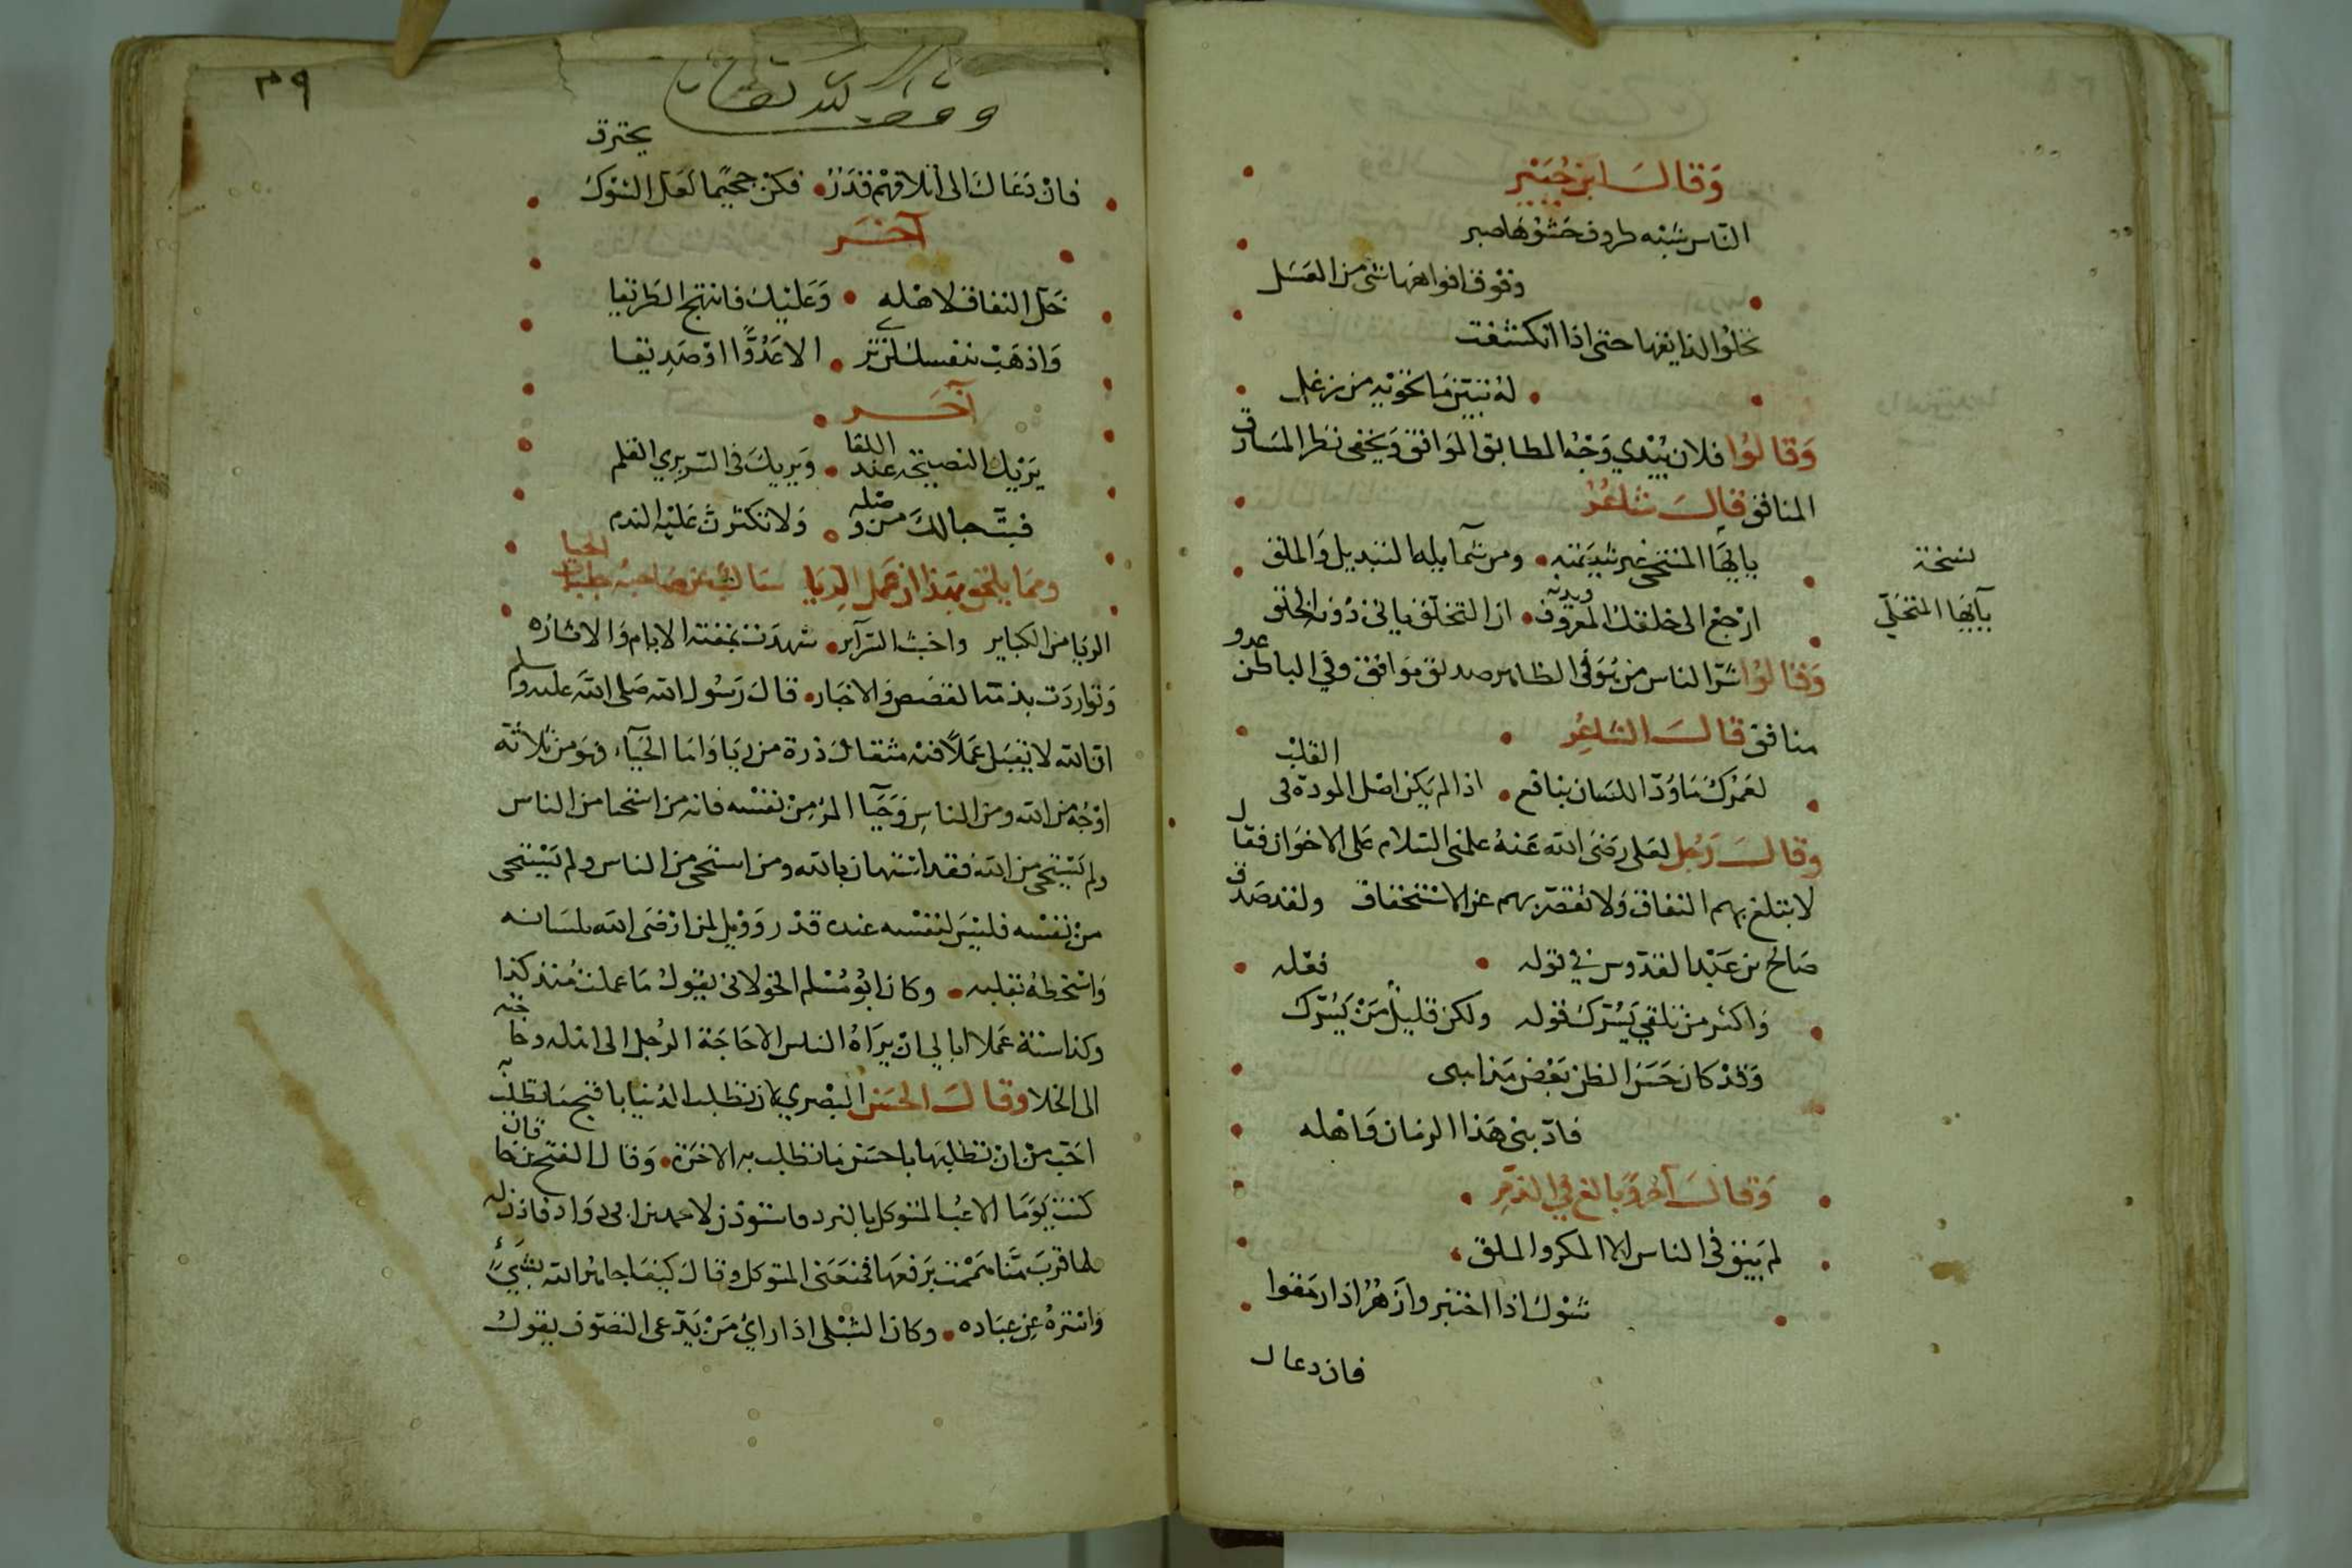 وَقَالَ ابن جُبَيْر
الناس شبه ظروف حشوها صبر
وفوق افواهها شئ من العسل
تحلوا لذايقها حتى اذا انكشفت
له تبين ما تحويه من زغل
وَقَالُوا فلان يُبْدي وَجْه المطابق الموَافق وَيخفى نظر المسَارق
المنافق قال شاعر
يايها المتحلى غير شيمته ومن شمايله التبديل والملق
نسخة
يآيها المتحلّي
ارجع الى خلقك المعروف ديدنه ان التخلق ياتى دُونه الخلق
وَقَالُوا شرّ الناس من هُوَ فى الظاهر صديق مَوافق وفي الباطن عدو
منافق قال الشاعر
لعَمْرك مَا وُدّ اللسَان بنافع اذا لم يَكن اصْل المودة فى القلب
وقال رجل لعلى رَضىَ الله عَنهُ علمنى السلام عَلى الاخوَان فقال
لا تبلغ بهم النفاق وَلا تقصّر بهم عن الاستخفاف ولقد صَدق
صَالح بن عَبْد القدّوس في قوله
وَاكثر من تلقي يَسُرّك قوله ولكن قليل مَنْ يَسُرّك فعْله
وَقدْ كان حَسَن الظن بَعْض مَذاهبى
فادّبنى هَذا الزمان وَاهْله
وَقَالَ آخر وَبالغ في الذمّ
لم يَبق فى الناس الا المكر والملق
شوك اذا اختبروا زَهْر اذا رمَقوا
فان دعاك
٣٩
وقف لله تعالى
فانْ دَعَاك الى ائلافهم قدَر فكن جحيمًا لعَل الشوك يحترق
آخر
خَلّ النفاق لاهْله وَعَليْك فانتهج الطريقا
وَاذهَبْ بنفسك ان ترى الا عَدُوًّا اوْ صَدِيقا
آخر
يَريك النصيحة عند اللقا وَيريك فى السّر بري القلم
فبتّ حبالك من وصله وَلا تكثرن عَليْه الندم
ومما يلحق بهذا ان عمل الريا سالب عن صاحبه جلباب الحيا
الريا من الكباير واخبث السرآير شهدت بمقته الايام وَالاشاره
وَتوَاردَت بذمّه القصَص وَالاخبَار قال رَسُول الله صَلى الله عَليه وسلم
ان الله لا يقبَل عَملاً فيه مثقال ذرة من ريَا وَاما الحَيآء فهوَ من ثلاثة
اوْجُه من الله ومن الناس وَحَيآ المرْء مِنْ نفسْه فانه من استحا من الناس
ولم يَسْتحى من الله فقد استهان بالله ومن استحى من الناس ولم يَسْتحى
من نفسْه فليسَ لنفسْه عنده قدْر وَوَيل لمن ارْضَى الله بلسَانه
وَاسْخطهُ بقلبه وكان ابُو مُسْلم الخولانى يقول مَا عملت مُنذ كذا
وكذا سنة عَملا ابالي انْ يرَاهُ الناس الا حَاجَة الرجل الى اهله وحاجته
الى الخلا وقال الحسَن البصري لان تطلب الدُنيا باقبح مَا تطلب به
احَبّ مِن انْ تطلبهَا باحسَن مَا تطلب به الاخرَة وَقال الفتح بن خاقان
كنت يَوْمًا الاعب المتوكل بالنرد فاستوذن لاحمد بن ابى دوَاد فاذن له
فلما قربَ مِنَّا همَمْت برَفعهَا فمنعَنى المتوكل وقال كيف اجاهر الله بشيءٍ
وَاسْترهُ عن عبَاده وكان الشبْلى اذا راي مَنْ يَدّعى التصَوّف يقول